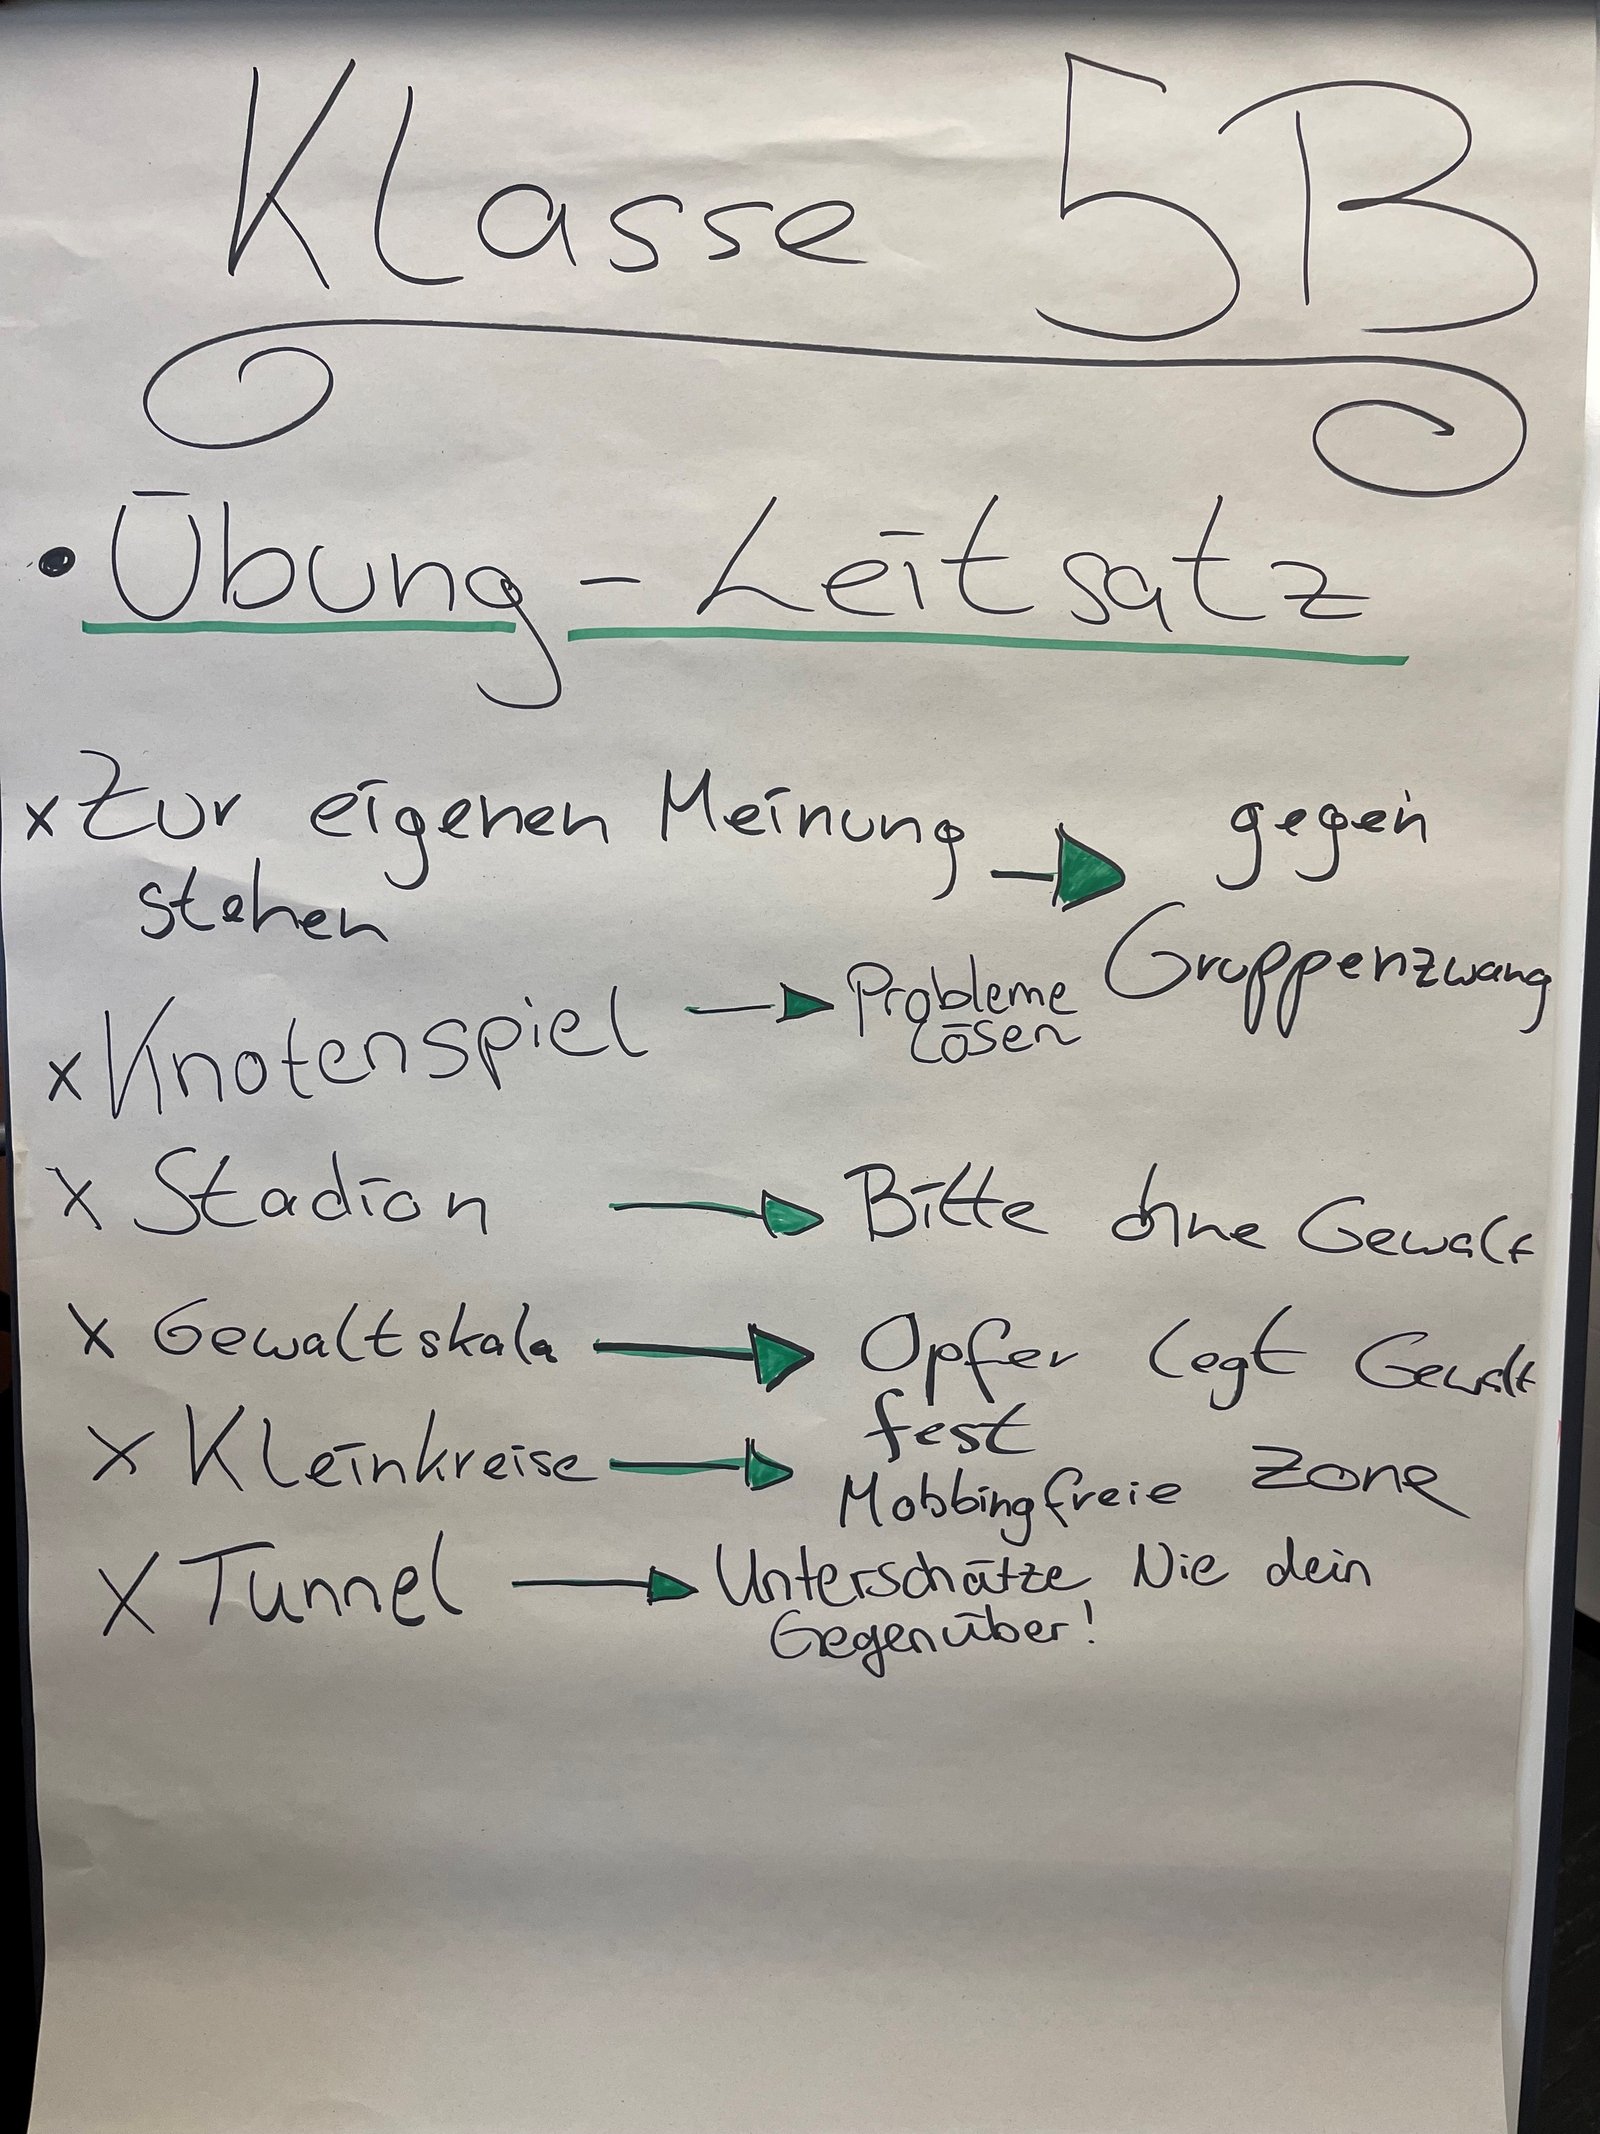 Klasse 5B
• Übung - Leitsatz
x Zur eigenen Meinung → gegen
stehen
Gruppenzwang
x Knotenspiel → Probleme
lösen
x Stadion → Bitte ohne Gewalt
x Gewaltskala → Opfer legt Gewalt
fest
x Kleinkreise → Mobbingfreie Zone
x Tunnel → Unterschätze Nie dein
Gegenüber!